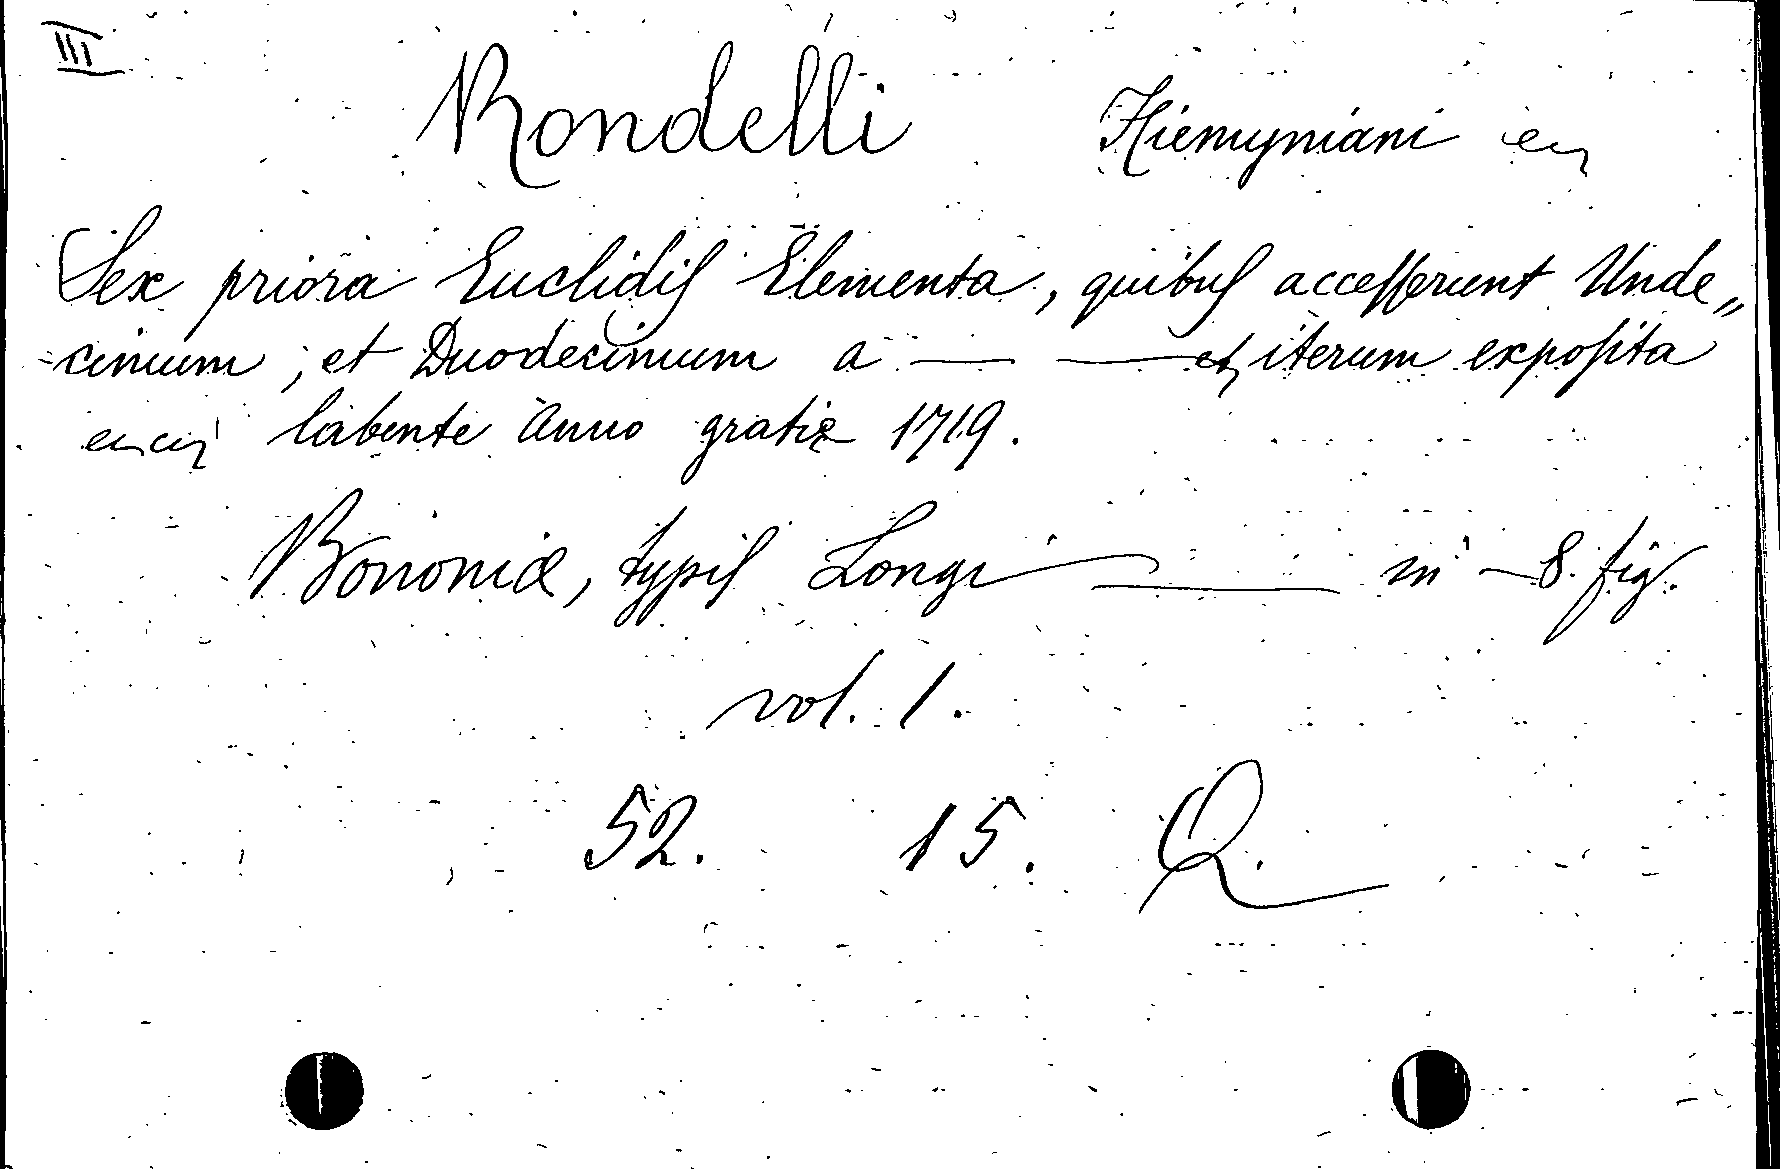 III
Rondelli Hiemyniani
Sex priora Euclidis Elementa, quibus accesserunt Unde„
cimum, et Duodecimum a — — et iterum exposita
labente Anno gratiæ 1719.
Bononiæ, typis Longi — in — 8. fig.
vol. 1.
52. 15. Q.